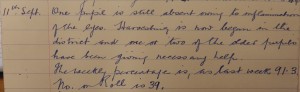 11th Sept. One pupil is still absent owing to inflammation
of the eyes. Harvesting is now begun in the
district and one or two of the older pupils
have been giving necessary help.
The weekly percentage is, as last week 91.3.
No. on Roll is 39.